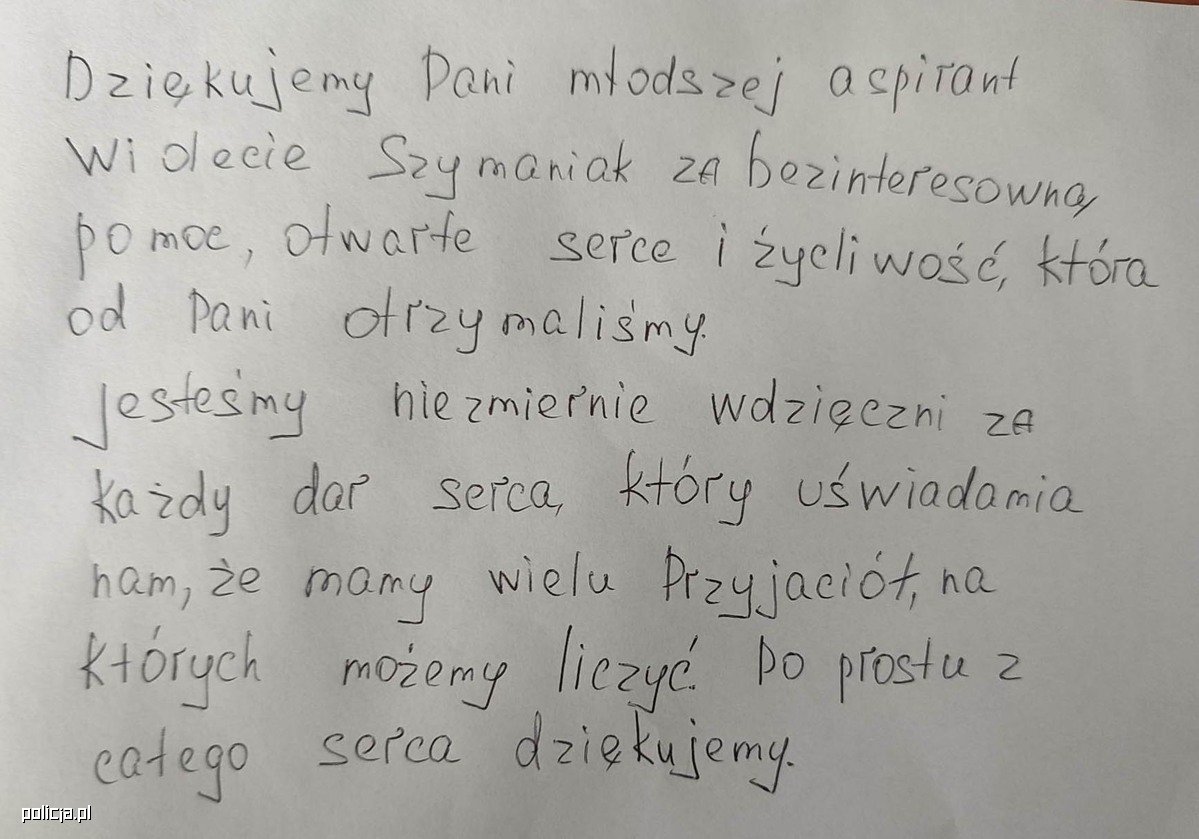 Dziękujemy Pani młodszej aspirant
Wiolecie Szymaniak za bezinteresowną
pomoc, otwarte serce i życliwość, która
od Pani otrzymaliśmy.
Jesteśmy niezmiernie wdzięczni za
każdy dar serca, który uświadamia
nam, że mamy wielu Przyjaciół, na
których możemy liczyć. Po prostu z
całego serca dziękujemy.
policja.pl